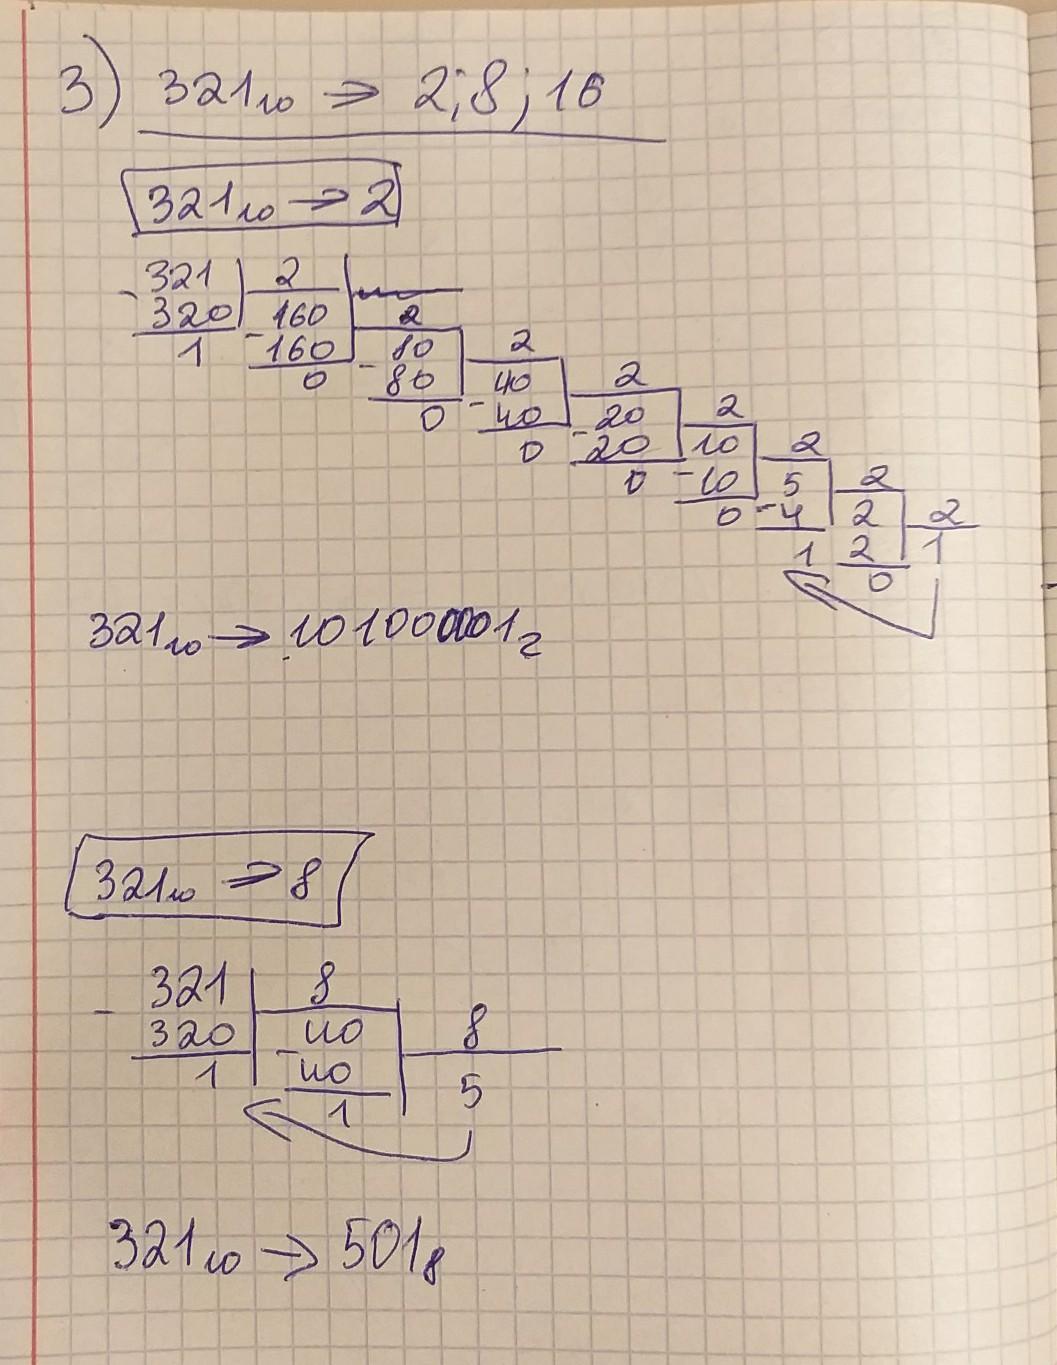 3) 321₁₀ → 2; 8; 16
321₁₀ → 2
321 2
- 320 160 2
1 - 160 80 2
0 - 80 40 2
0 - 40 20 2
0 - 20 10 2
0 - 10 5 2
0 - 4 2 2
1 2 1
0
321₁₀ → 101000001₂
321₁₀ → 8
- 321 8
320 - 40 8
1 40 5
1
321₁₀ → 501₈